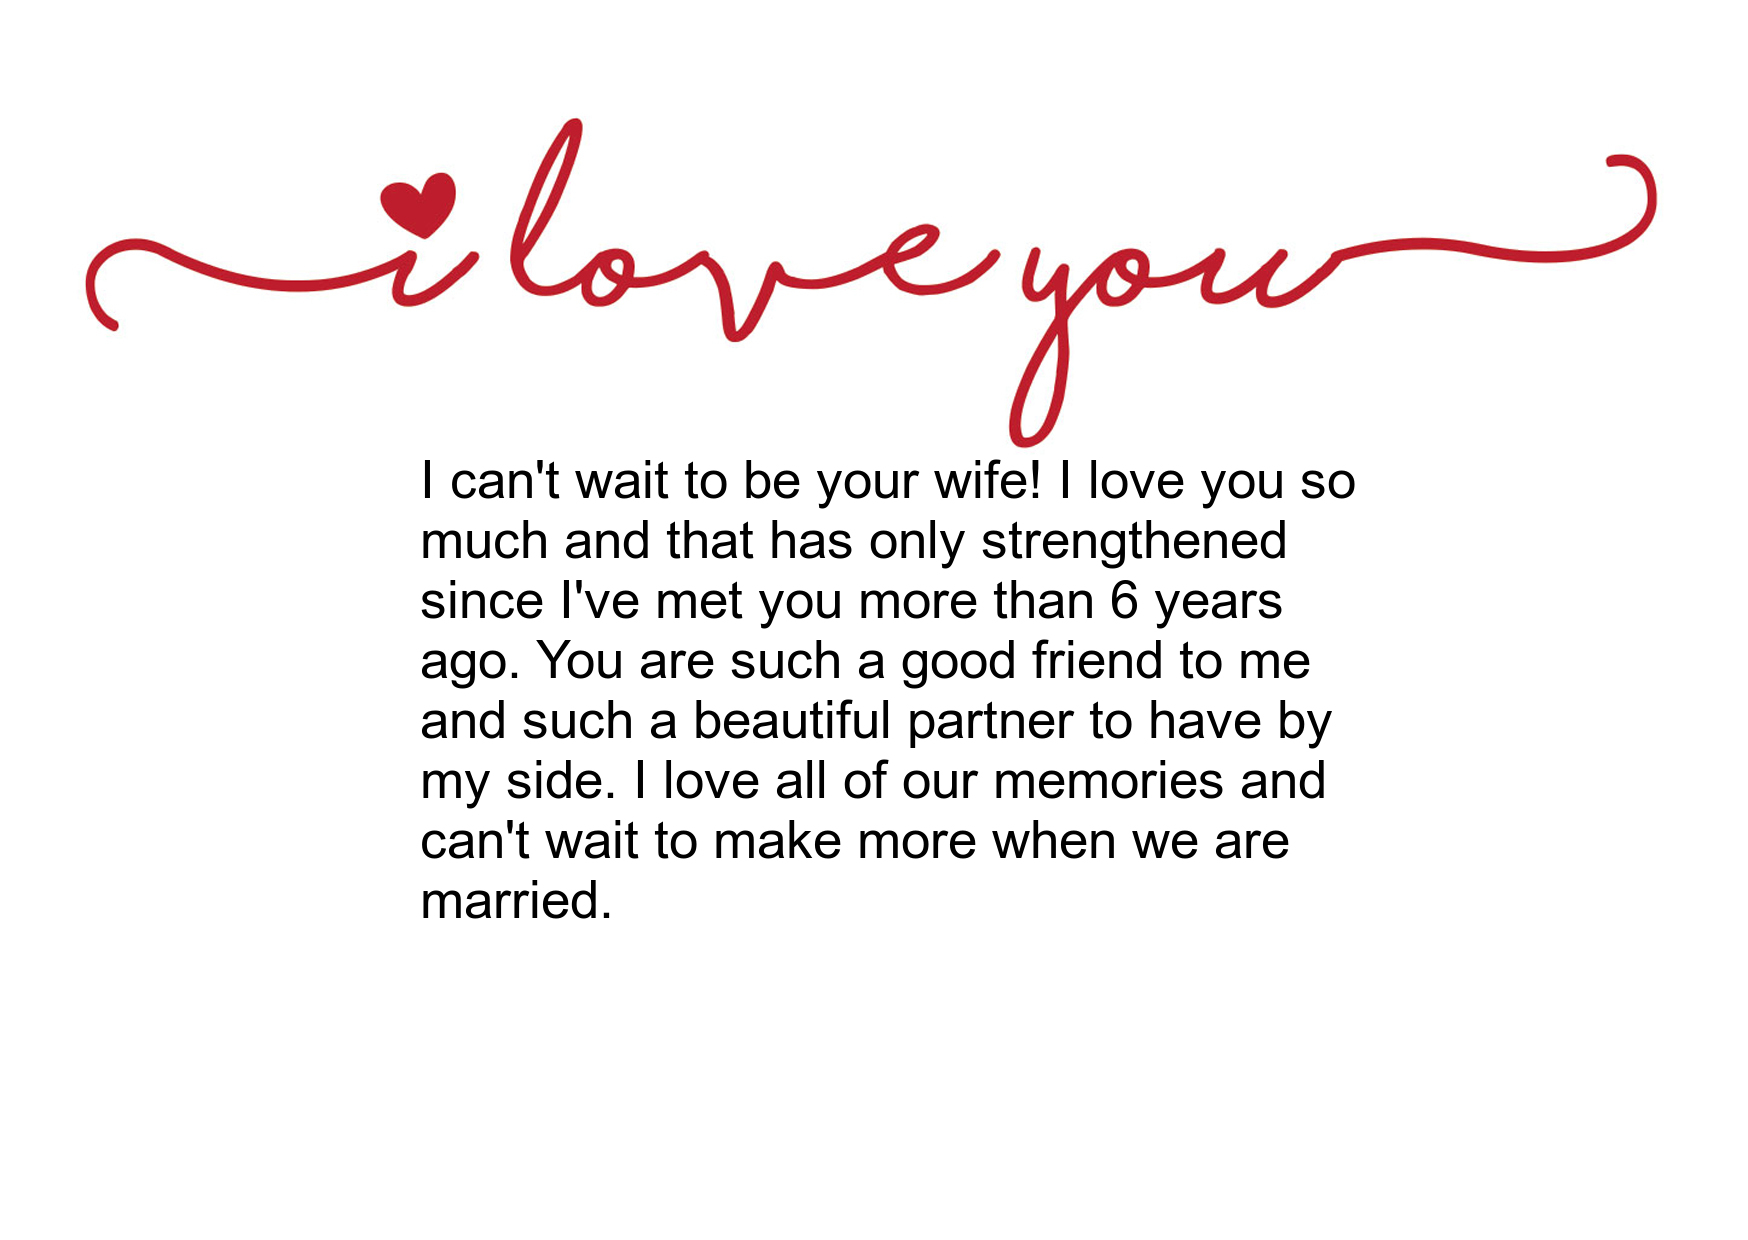 i love you
I can't wait to be your wife! I love you so
much and that has only strengthened
since I've met you more than 6 years
ago. You are such a good friend to me
and such a beautiful partner to have by
my side. I love all of our memories and
can't wait to make more when we are
married.